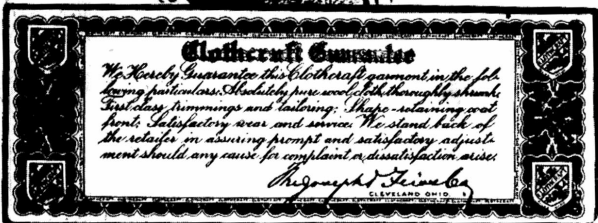 Clothcraft Guarantee
We Hereby Guarantee this Clothcraft garment in the fol-
lowing particulars: Absolutely pure wool cloth, thoroughly shrunk;
First class trimmings and tailoring; Shape-retaining coat
front; Satisfactory wear and service. We stand back of
the retailer in assuring prompt and satisfactory adjust-
ment should any cause for complaint or dissatisfaction arise.
The Joseph & Feiss Co
CLEVELAND OHIO